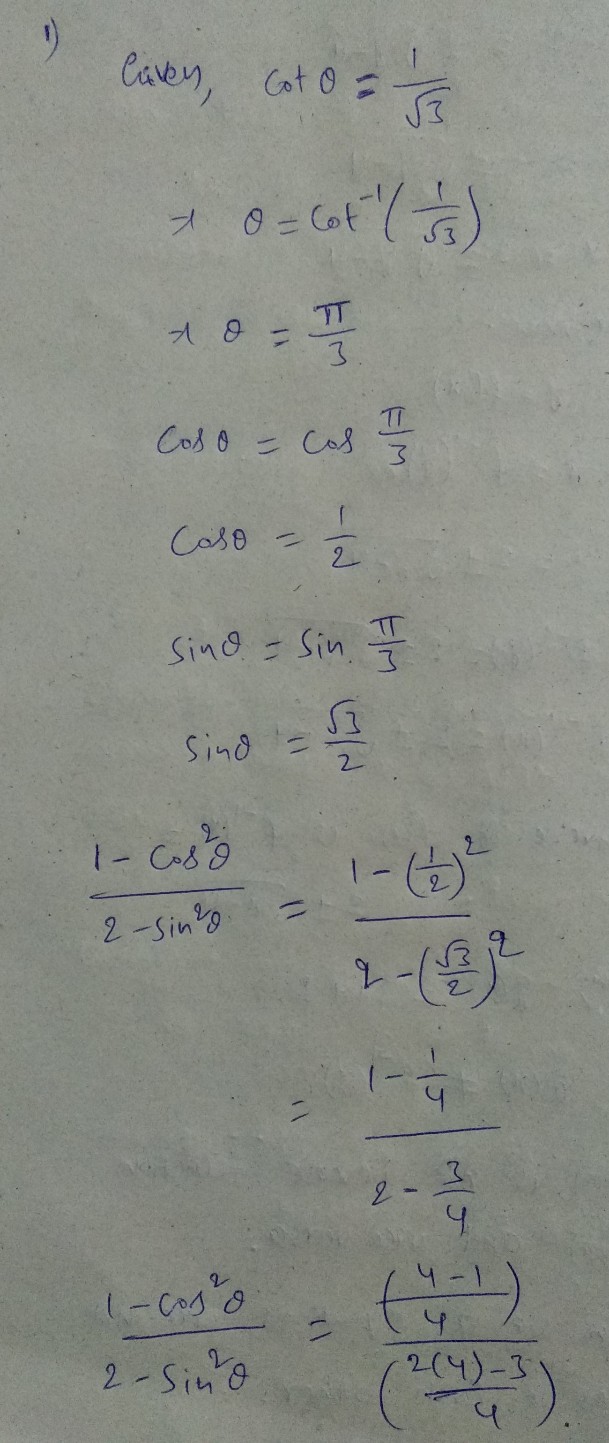 1)
Given, cot θ = 1/√3
⇒ θ = cot⁻¹(1/√3)
⇒ θ = π/3
cosθ = cos π/3
cosθ = 1/2
sinθ = sin π/3
sinθ = √3/2
(1 - cos²θ)/(2 - sin²θ) = (1 - (1/2)²)/(2 - (√3/2)²)
= (1 - 1/4)/(2 - 3/4)
(1 - cos²θ)/(2 - sin²θ) = ((4-1)/4)/((2(4)-3)/4).